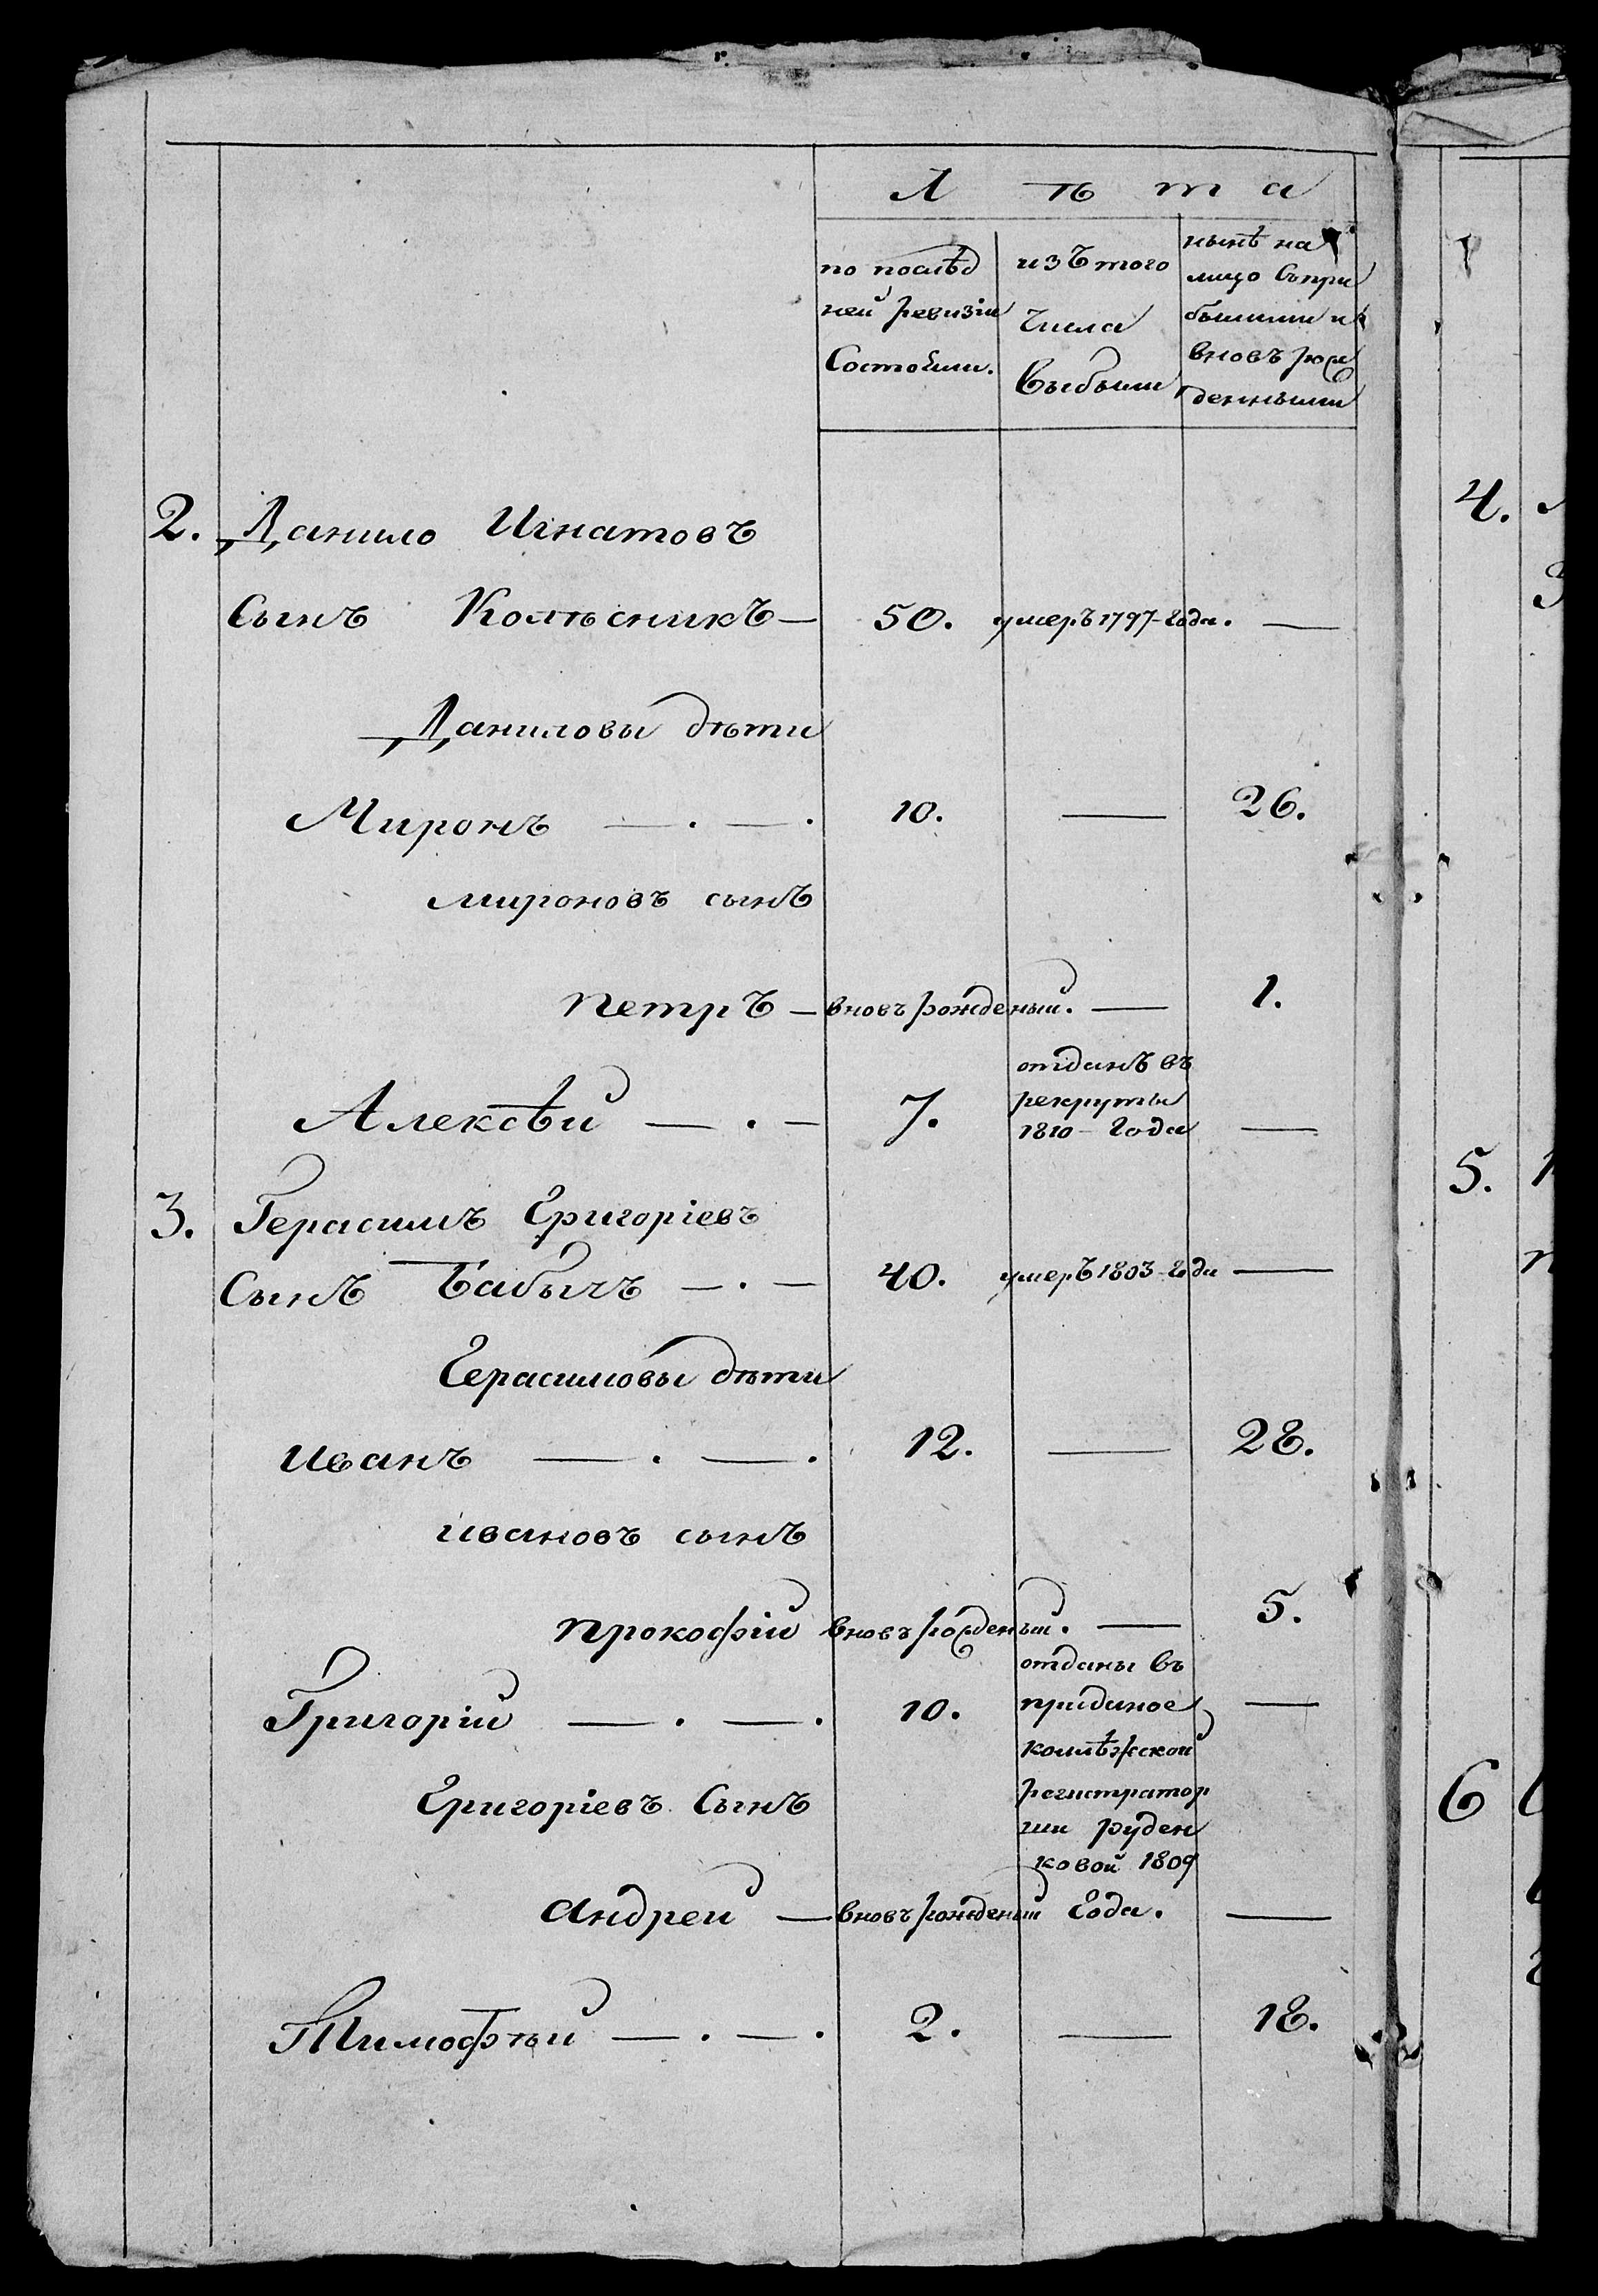 Лѣта
по послѣд
ней ревизіи
состояли.
изъ того
числа
выбыли
нынѣ на
лицо съ при
былыми и
вновь рож
денными
2. Данило Игнатовъ
сынъ Колѣсникъ — 50. умеръ 1797 - года. —
Даниловы дѣти
Миронъ — . — . 10. — 26.
мироновъ сынъ
петръ — вновь рожденый. — 1.
отданъ въ
рекруты
1810 - года
Алексѣй — . — 7. —
3. Герасимъ Григоріевъ
сынъ Бабычъ — . — 40. умеръ 1803 - года —
Герасимовы дѣти
иванъ — . — . 12. — 28.
ивановъ сынъ
прокофій вновь рожденый. — 5.
отданы въ
Григорій — . — . 10. приданое —
коллѣжской
Григоріевъ сынъ регистратор
ши руден
ковой 1809
андрей — вновь рожденый года. —
Тимофѣй — . — . 2. — 18.
4.
5.
6